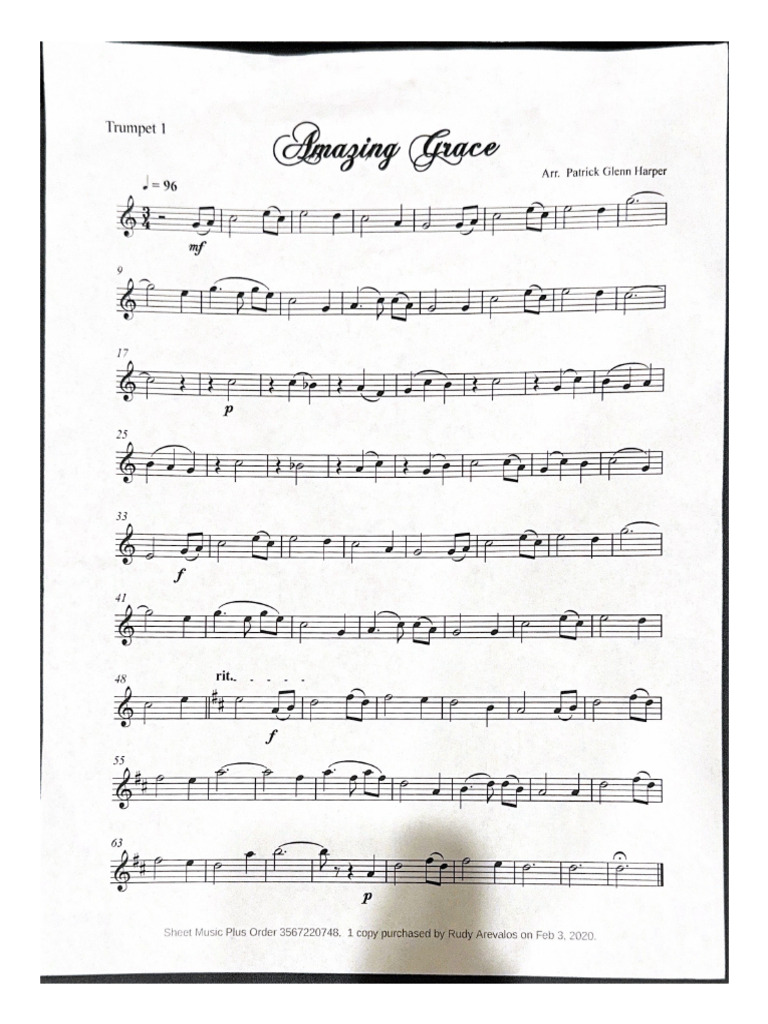 Trumpet 1
Amazing Grace
Arr. Patrick Glenn Harper
♩ = 96
3
4
mf
9
17
p
25
33
f
41
48
rit. . . . .
f
55
63
p
Sheet Music Plus Order 3567220748. 1 copy purchased by Rudy Arevalos on Feb 3, 2020.